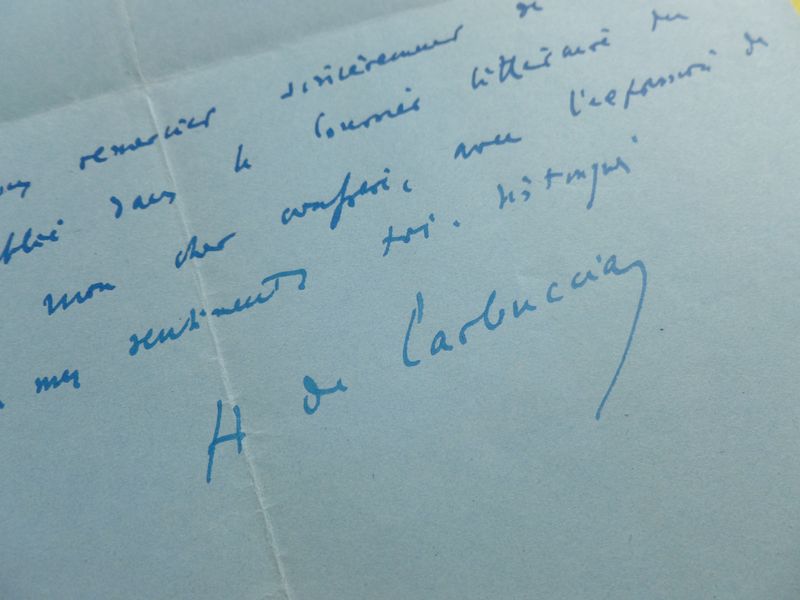 remercier sincèrement de
dans le Courrier littéraire du
mon cher confrère, avec l'expression de
mes sentiments très distingués
H de Carbuccia